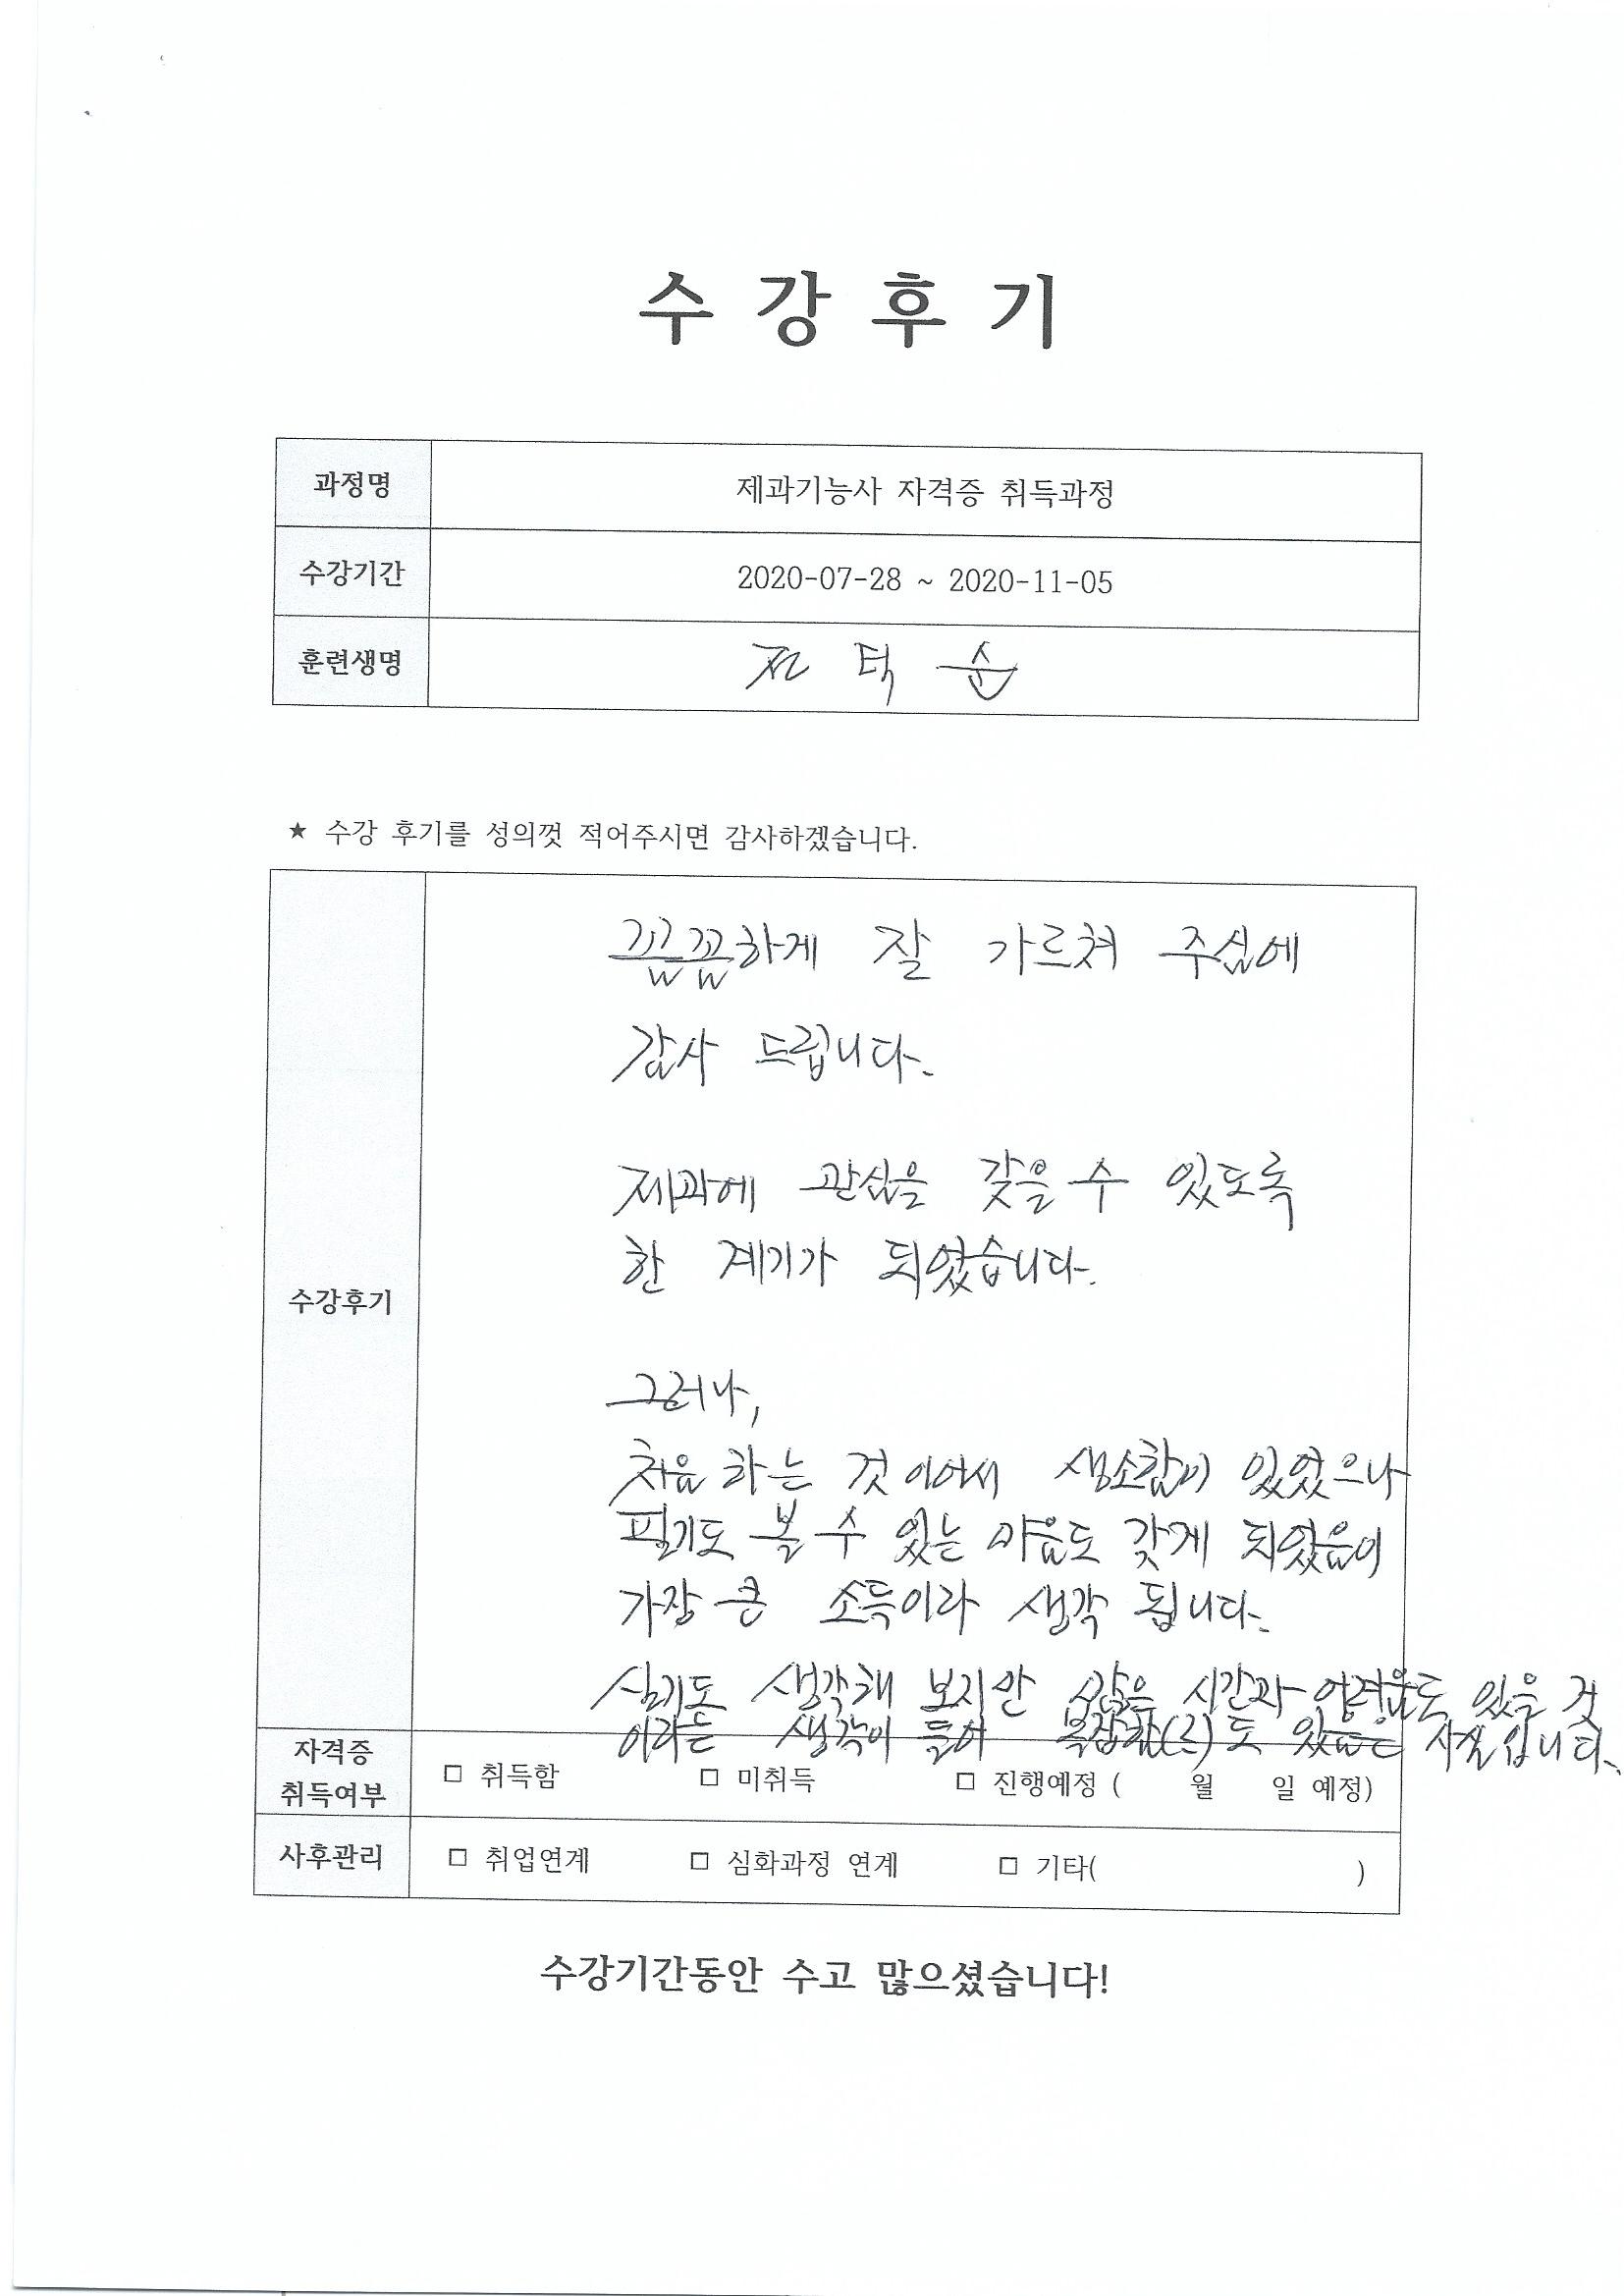 수 강 후 기
과정명 제과기능사 자격증 취득과정
수강기간 2020-07-28 ~ 2020-11-05
훈련생명 전 덕 순
★ 수강 후기를 성의껏 적어주시면 감사하겠습니다.
수강후기
꼼꼼하게 잘 가르쳐 주심에
감사 드립니다.
제과에 관심을 갖을 수 있도록
한 계기가 되었습니다.
그러나,
처음 하는 것 이어서 생소함이 있었으나
필기도 볼 수 있는 마음도 갖게 되었음이
가장 큰 소득이라 생각 됩니다.
실기도 생각해 보지만 많은 시간과 어려움도 있을 것
이라는 생각이 들어 복잡함 도 있 사실입니다.
자격증
취득여부 □ 취득함 □ 미취득 □ 진행예정 ( 월 일 예정)
사후관리 □ 취업연계 □ 심화과정 연계 □ 기타( )
수강기간동안 수고 많으셨습니다!